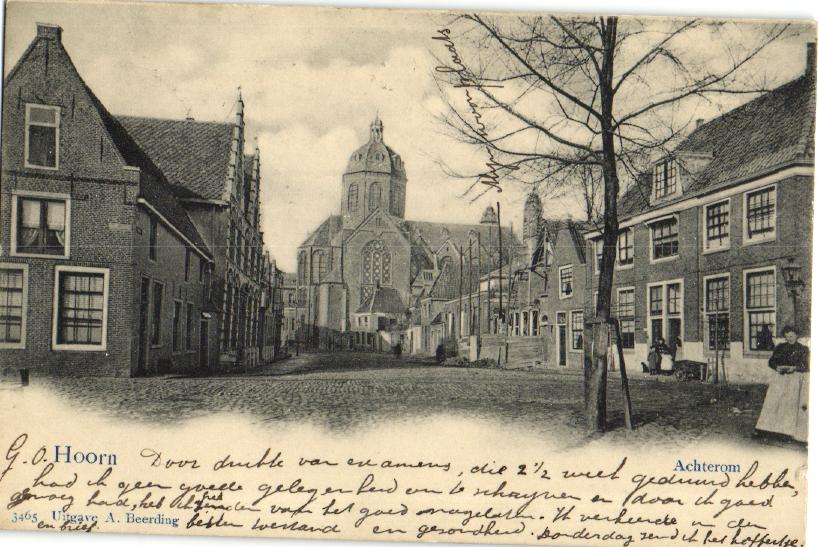 Mijn woonplaats
G.O. Hoorn
Achterom
Door drukte van examens, die 2½ week geduurd hebben,
had ik geen goede gelegenheid om te schrijven en daar ik goed
genoeg had, heb ik het van het goed nagelaten. Ik verkeerde in den
besten toestand en gezondheid. Donderdag zend ik het koffertje
en brief.
3465 Uitgave A. Beerding